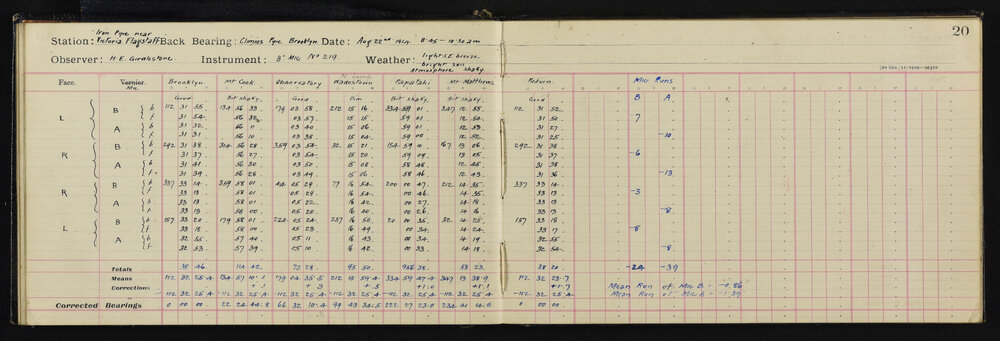 20
Iron Pipe near
Station: Victoria Flagstaff Back Bearing: Climies Pipe Brooklyn Date: Aug 22nd 1914 8.45 – 10.30 am
Observer: H E Girdlestone. Instrument: 8" Mic No 219 Weather: light S.E breeze
bright sun
Atmosphere shaky.
Face. Vernier. Mic Brooklyn Mt Cook. Observatory Wadestown Papatahi Mt Matthews Return. Mic Runs
Good Bit shaky. Good Dim Bit shaky. Bit shaky. Good B A
L B b 112 31 55 134 56 33 179 03 58 212 15 16 334 59 01 347 12 55 112 31 52
f 31 54 56 32 03 57 15 15 59 01 12 54 31 50 -7
A b 31 32 56 11 03 40 15 06 59 01 12 53 31 27
f 31 31 56 10 03 38 15 04 59 00 12 52 31 25 -10
R B b 292 31 38 314 56 28 359 03 54 32 15 21 154 59 10 167 13 06 292 31 38
f 31 37 56 27 03 54 15 20 59 09 13 05 31 37 -6
A b 31 41 56 30 03 50 15 08 58 48 12 45 31 38
f 31 39 56 28 03 49 15 06 58 46 12 43 31 36 -13
R B b 337 33 14 359 58 01 44 05 29 79 16 54 200 00 47 212 14 35 337 33 14
f 33 13 58 01 05 29 16 54 00 46 14 35 33 13 -3
A b 33 13 58 01 05 22 16 42 00 27 14 18 33 13
f 33 13 58 00 05 20 16 40 00 26 14 16 33 13 -8
L B b 157 33 20 179 58 01 224 05 24 257 16 50 20 00 35 32 14 25 157 33 18
f 33 18 58 00 05 23 16 49 00 34 14 24 33 17 -8
A b 32 55 57 40 05 11 16 43 00 34 14 19 32 55
f 32 53 57 39 05 10 16 42 00 33 14 18 32 54 -8
Totals 35 46 114 42 73 28 95 50 956 38 53 23 38 20 -24 -39
Means 112 32 25.4 134 57 10.2 179 04 35.5 212 15 59.4 334 59 47.4 347 13 38.9 112 32 23.7 Mean Run of Mic B = -0.86"
Corrections +.1 +.3 +.5 +1.0 +1.1 +1.7 Mean Run of Mic A = -1.39
-112 32 25.4 -112 32 25.4 -112 32 25.4 -112 32 25.4 -112 32 25.4 -112 32 25.4 -112 32 25.4
Corrected Bearings 0 00 00 22 24 44.8 66 32 10.4 99 43 34.5 222 27 23.0 234 41 14.6 0 00 00